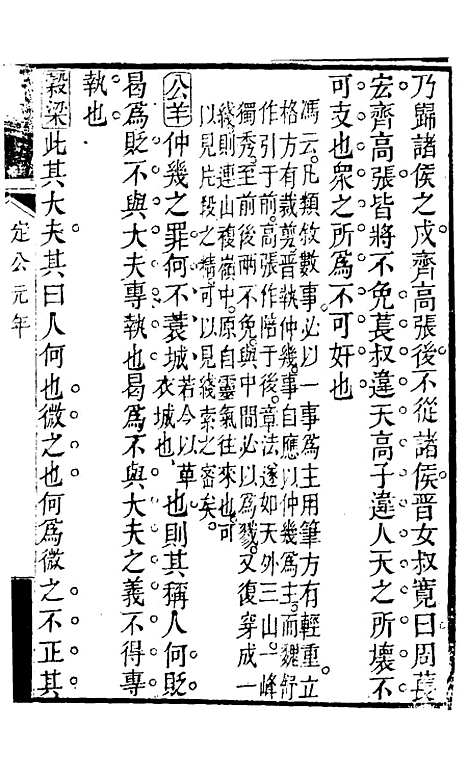 乃歸諸侯之戍齊高張後不從諸侯晉女叔寬曰周萇
宏齊高張皆將不免萇叔違天高子違人天之所壞不
可支也眾之所為不可奸也
馮云凡類敘數事必以一事為主用筆方有輕重立
格方有裁剪晉執仲幾事自應以仲幾為主而魏舒
作引于前高張作陪于後章法遂如天外三山一峰
獨秀至前後兩不免與中間必以為戮又復穿成一
綫則連山複嶺中原自靈氣往來也可
以見片段之精可以見綫索之密矣
公羊仲幾之罪何不蓑城若今以草衣城也也則其稱人何貶
曷為貶不與大夫專執也曷為不與大夫之義不得專
執也
穀梁此其大夫其曰人何也微之也何為微之不正其
定公元年